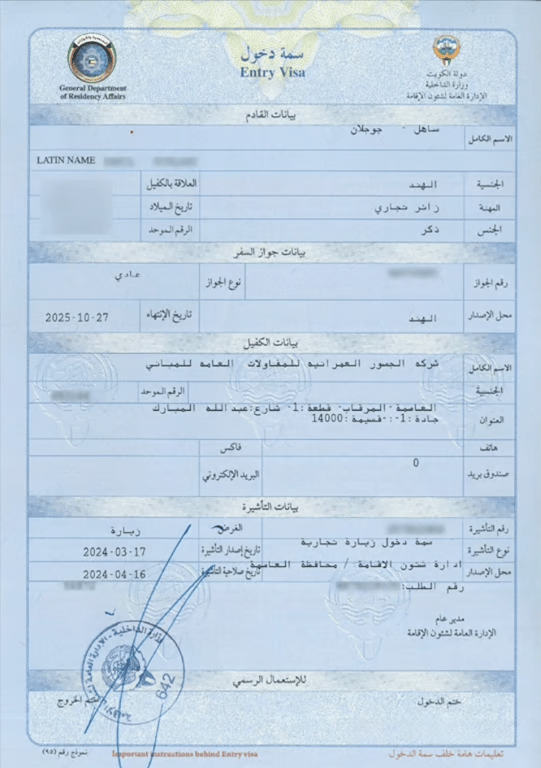 سمة دخول
Entry Visa
General Department
of Residency Affairs
دولة الكويت
وزارة الداخلية
الإدارة العامة لشئون الإقامة
بيانات القادم
الاسم الكامل ساهل - جوجلان
LATIN NAME
الجنسية الهند العلاقة بالكفيل
المهنة زائر تجاري تاريخ الميلاد
الجنس ذكر الرقم الموحد
بيانات جواز السفر
رقم الجواز نوع الجواز عادي
محل الإصدار الهند تاريخ الإنتهاء 2025-10-27
بيانات الكفيل
الاسم الكامل شركه الجسور العمرانيه للمقاولات العامه للمباني
الجنسية الرقم الموحد
العنوان العاصمة-المرقاب- قطعة:1- شارع:عبدالله المبارك
جادة:1-:-قسيمة:14000
هاتف فاكس
صندوق بريد 0 البريد الإلكتروني
بيانات التأشيرة
رقم التأشيرة الغرض زيارة
نوع التأشيرة سمة دخول زيارة تجارية تاريخ إصدار التأشيرة 2024-03-17
محل الإصدار إدارة شئون الاقامة / محافظة العاصمة تاريخ صلاحية التأشيرة 2024-04-16
رقم الطلب:
مدير عام
الإدارة العامة لشئون الإقامة
وزارة الداخلية - الإدارة العامة
642
للإستعمال الرسمي
ختم الدخول ختم الخروج
تعليمات هامة خلف سمة الدخول
Important instructions behind Entry visa
نموذج رقم (٩٥)